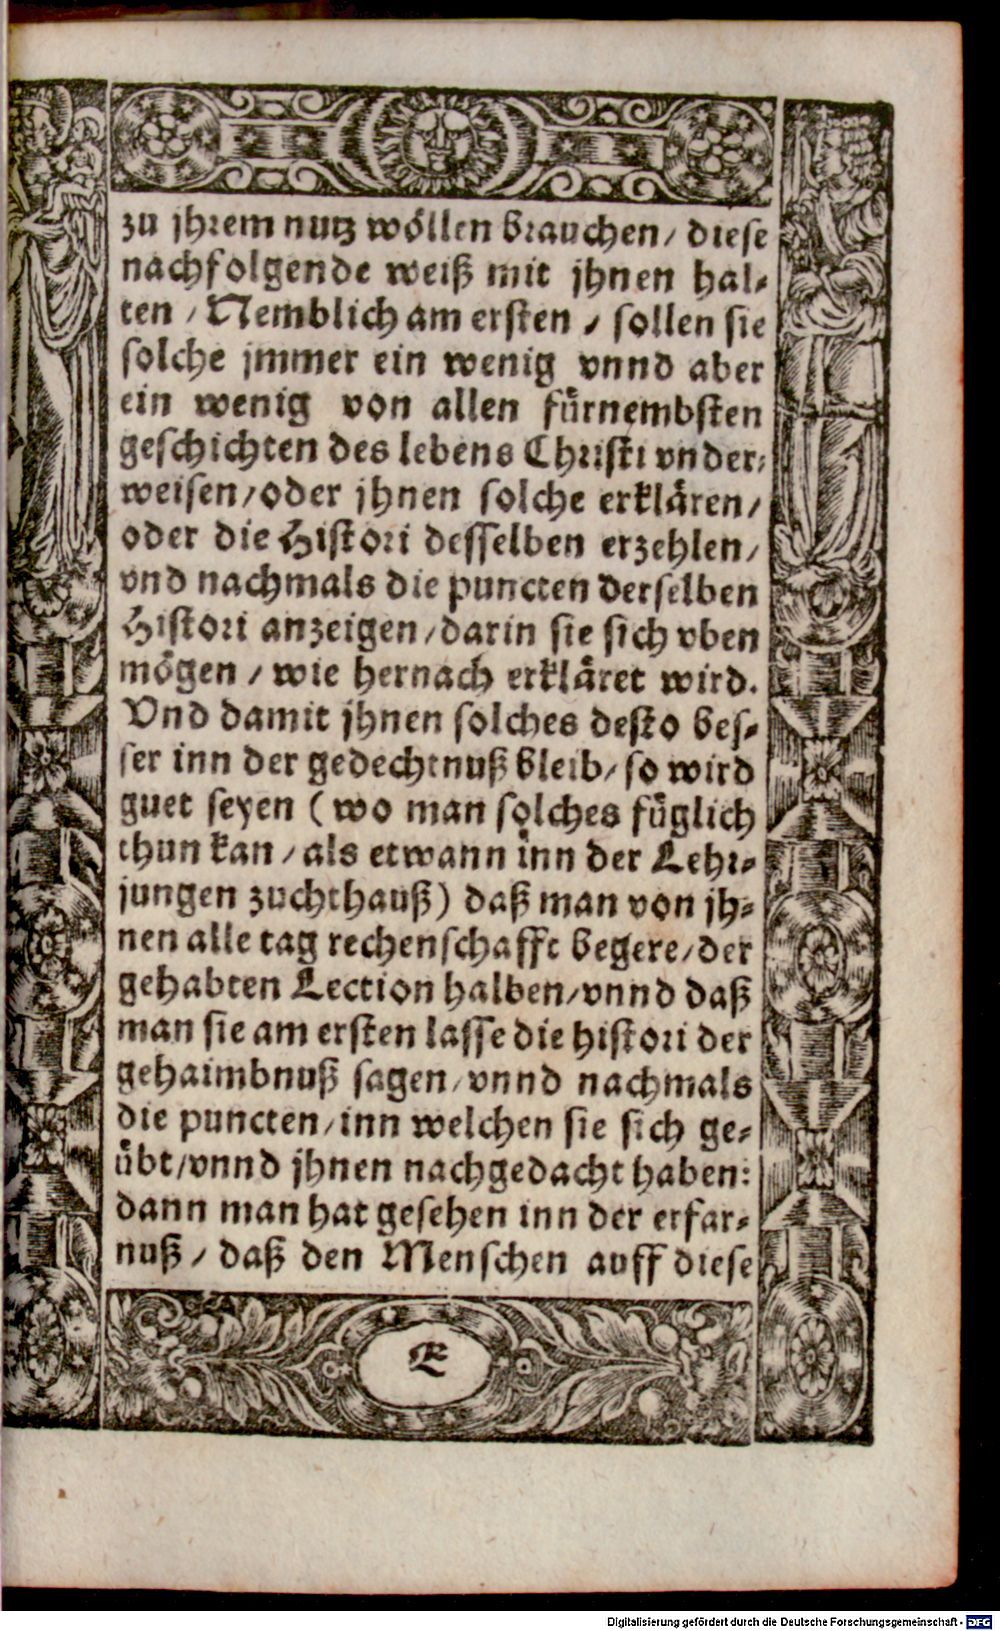 zu jhrem nutz wöllen brauchen/ diese
nachfolgende weiß mit jhnen hal-
ten / Nemblich am ersten / sollen sie
solche jmmer ein wenig vnnd aber
ein wenig von allen fürnembsten
geschichten des lebens Christi vnder-
weisen/oder jhnen solche erklären/
oder die Histori desselben erzehlen/
vnd nachmals die puncten derselben
Histori anzeigen/darin sie sich vben
mögen / wie hernach erkläret wird.
Vnd damit jhnen solches desto bes-
ser inn der gedechtnuß bleib/ so wird
guet seyen ( wo man solches füglich
thun kan / als etwann inn der Lehr-
jungen zuchthauß) daß man von jh-
nen alle tag rechenschafft begere/der
gehabten Lection halben/vnnd daß
man sie am ersten lasse die histori der
gehaimbnuß sagen/vnnd nachmals
die puncten/inn welchen sie sich ge-
übt/vnnd jhnen nachgedacht haben:
dann man hat gesehen inn der erfar-
nuß / daß den Menschen auff diese
Digitalisierung gefördert durch die Deutsche Forschungsgemeinschaft - DFG